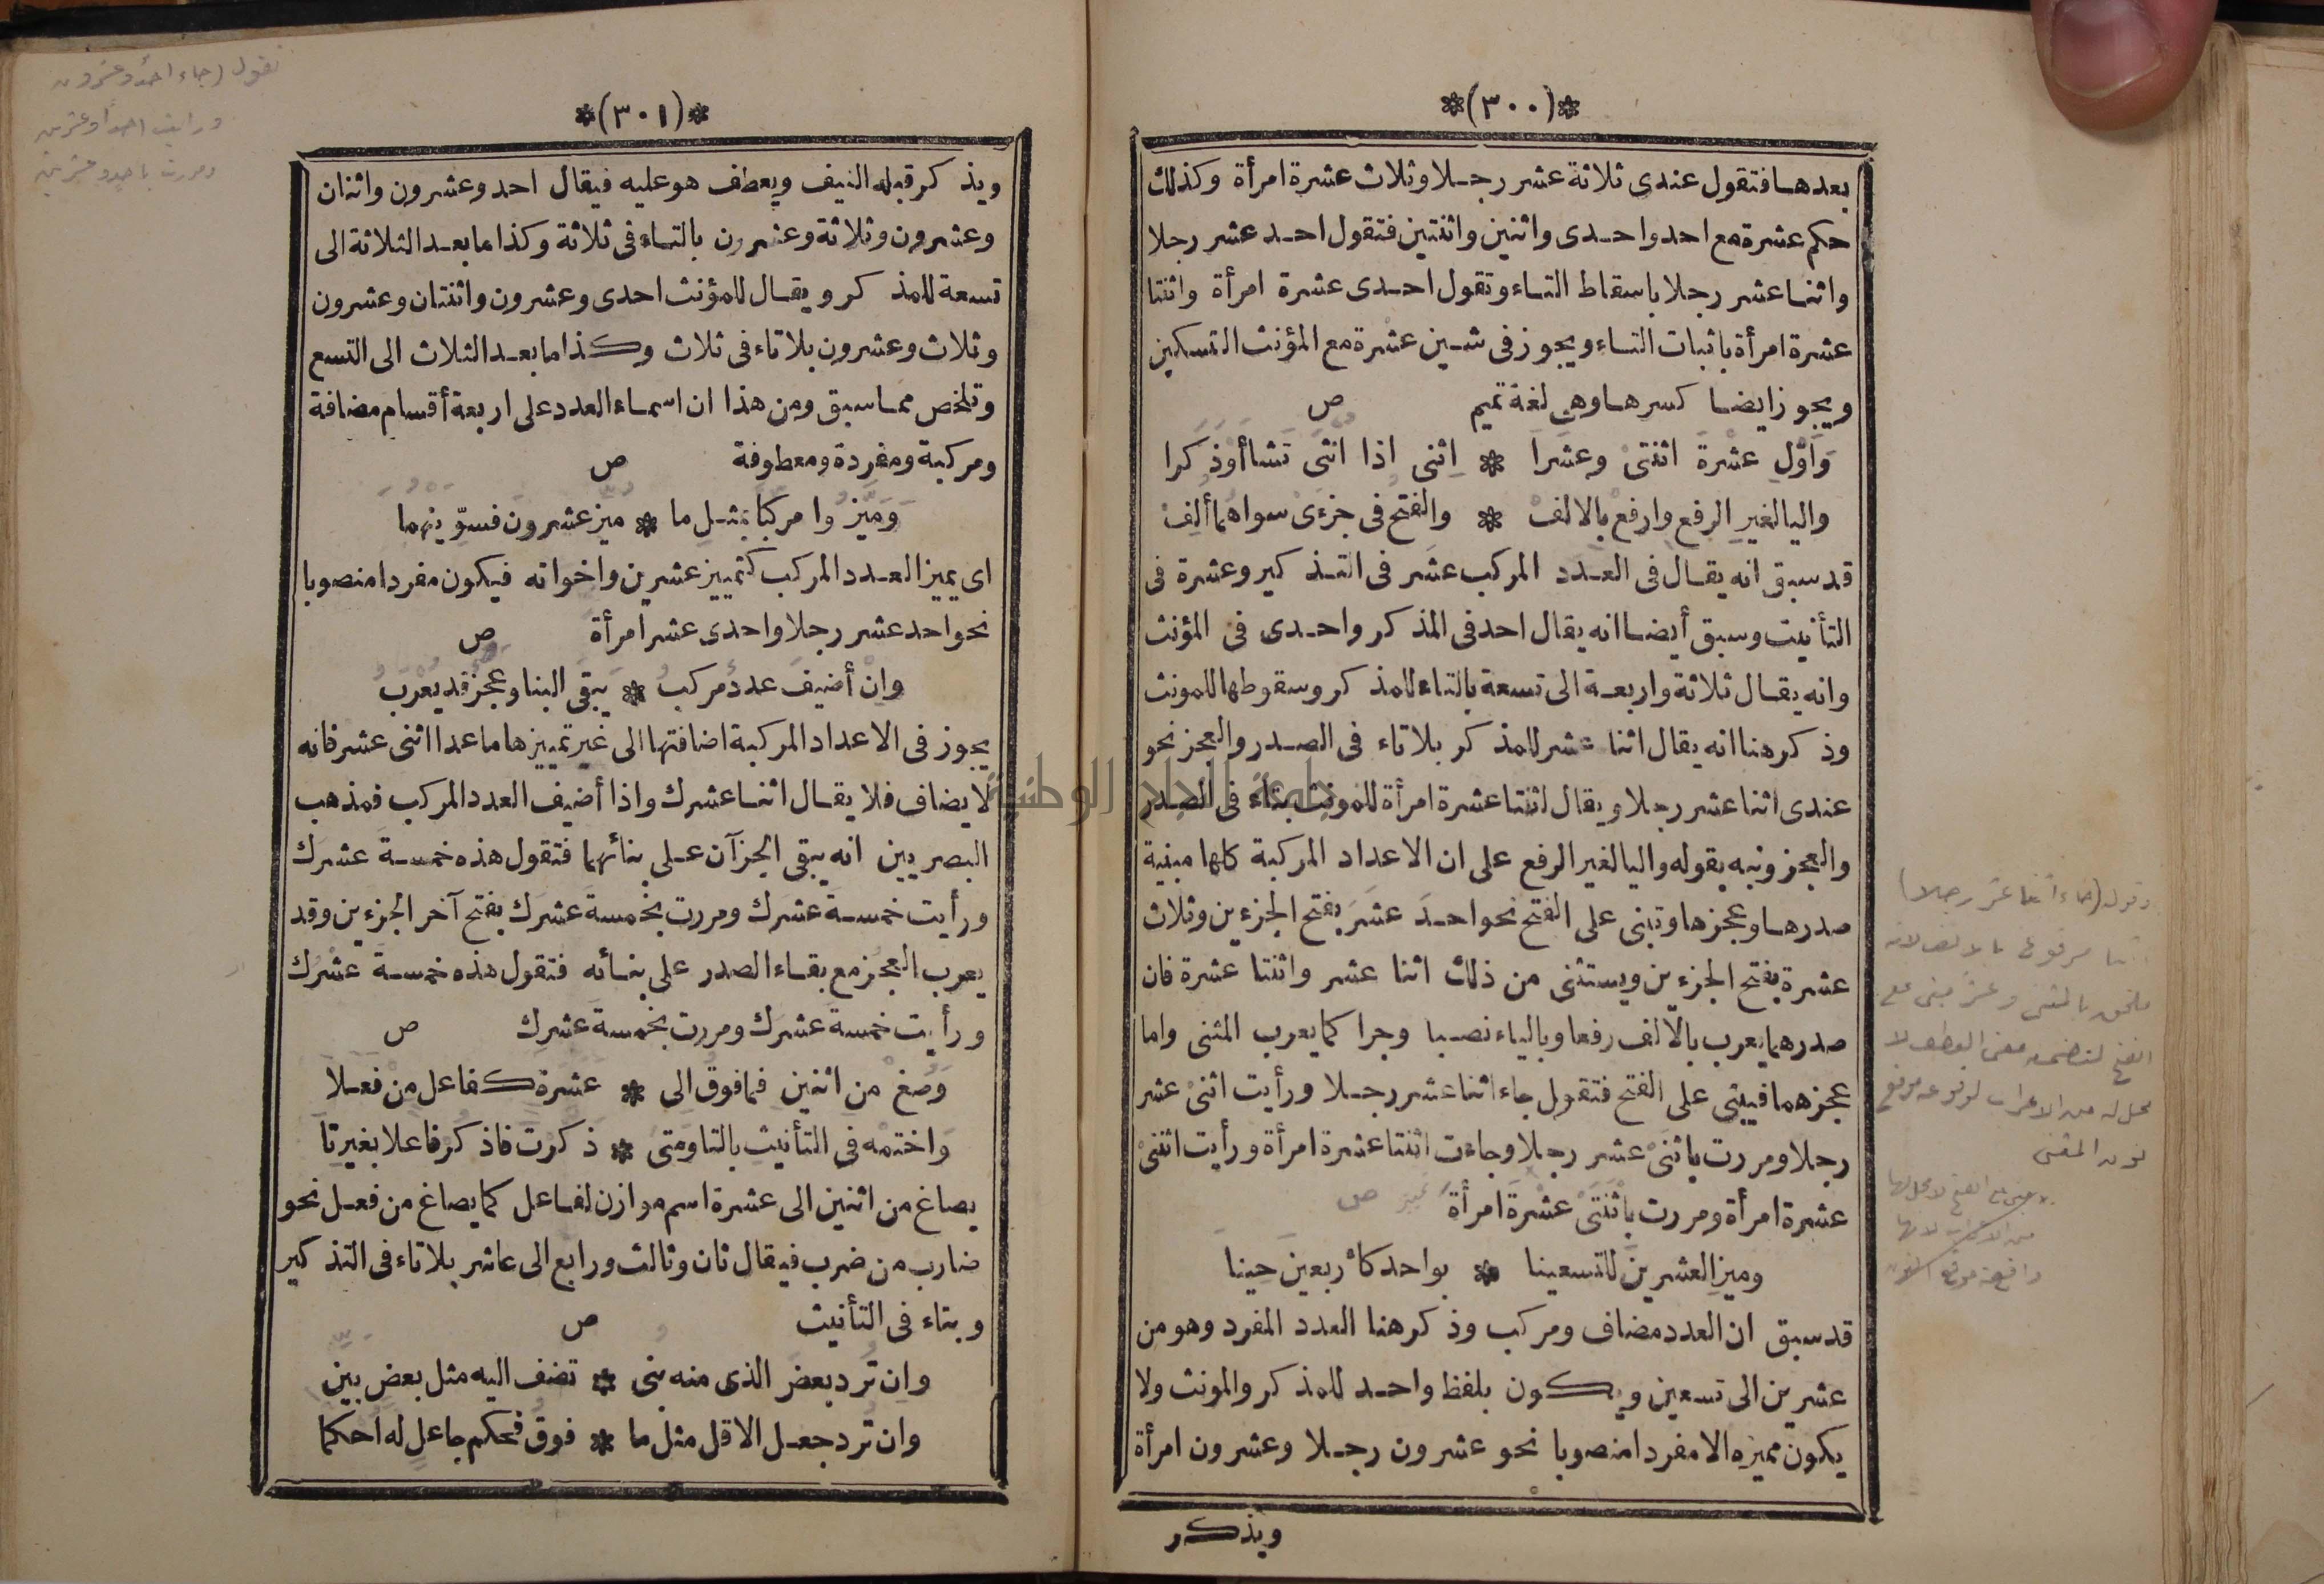 *(٣٠٠)*
بعدها فتقول عندى ثلاثة عشر رجلا وثلاث عشرة امرأة وكذلك
حكم عشرة مع احد واحدى واثنين واثنتين فتقول احد عشر رجلا
واثنا عشر رجلا باسقاط التاء وتقول احدى عشرة امرأة واثنتا
عشرة امرأة باثبات التاء ويجوز فى شين عشرة مع المؤنث التسكين
ويجوز ايضا كسرها وهى لغة تميم ص
وَاَوْلِ عشْرةَ اثنتىْ وعشَرَا * اِثنى اذا انثَى تَشا أوْ ذَكَرا
واليا لغيرِ الرفع وارفعْ بالالفْ * والفتحُ فى جزءَىْ سواهُما أُلِفْ
قد سبق انه يقال فى العدد المركب عشر فى التذكير وعشرة فى
التأنيث وسبق أيضا انه يقال احد فى المذكر واحدى فى المؤنث
وانه يقال ثلاثة واربعة الى تسعة بالتاء للمذكر وسقوطها للمونث
وذكر هنا انه يقال اثنا عشر للمذكر بلا تاء فى الصدر والعجز نحو
عندى اثنا عشر رجلا ويقال اثنتا عشرة امرأة للمونث بتاء فى الصدر
والعجز ونبه بقوله واليا لغير الرفع على ان الاعداد المركبة كلها مبنية
صدرها وعجزها وتبنى على الفتح نحو احدَ عشرَ بفتح الجزءين وثلاث
عشرة بفتح الجزءين ويستثنى من ذلك اثنا عشر واثنتا عشرة فان
صدرهما يعرب بالالف رفعا وبالياء نصبا وجرا كما يعرب المثنى واما
عجزهما فيبنى على الفتح فتقول جاء اثنا عشر رجلا ورأيت اثنىْ عشر
رجلا ومررت باثنىْ عشر رجلا وجاءت اثنتا عشرة امرأة ورأيت اثنتىْ
عشرة امرأة ومررت باثْنَتَىْ عشْرةَ امرأةً
وميزِ العشرينَ للتسعينا * بواحد كأربعينَ حينا
قد سبق ان العدد مضاف ومركب وذكر هنا العدد المفرد وهو من
عشرين الى تسعين ويكون بلفظ واحد للمذكر والمونث ولا
يكون مميزه الا مفردا منصوبا نحو عشرون رجلا وعشرون امرأة
ويذكر
وتقول (جاء اثنا عشر رجلا)
مرفوع بالالف لانه
ملحق بالمثنى وعشر مبنى على
الفتح لتضمنه معنى العطف لا
محل له من الاعراب لوقوعه موقع
نون المثنى
من الاعراب لانها
واقعة موقع النون
*(٣٠١)*
ويذكر قبله النيف ويعطف هو عليه فيقال احد وعشرون واثنان
وعشرون وثلاثة وعشرون بالتاء فى ثلاثة وكذا ما بعد الثلاثة الى
تسعة للمذكر ويقال للمؤنث احدى وعشرون واثنتان وعشرون
وثلاث وعشرون بلا تاء فى ثلاث وكذا ما بعد الثلاث الى التسع
وتلخص مما سبق ومن هذا ان اسماء العدد على اربعة أقسام مضافة
ومركبة ومفردة ومعطوفة ص
وَمَيَّزُوا مركّبًا بمثلِ ما * ميز عشرون فسوّينهُما
اى يميز العدد المركب كتمييز عشرين واخواته فيكون مفردا منصوبا
نحو احد عشر رجلا واحدى عشر امرأة ص
وان أُضيفَ عددٌ مركبُ * يبقَى البنا وعجُزٌ قد يُعْرَبُ
يجوز فى الاعداد المركبة اضافتها الى غير تمييزها ما عدا اثنى عشر فانه
لا يضاف فلا يقال اثنا عشرك واذا أضيف العدد المركب فمذهب
البصريين انه يبقى الجزآن على بنائهما فتقول هذه خمسةَ عشرَك
ورأيت خمسةَ عشرَك ومررت بخمسةَ عشرَك بفتح آخر الجزءين وقد
يعرب العجز مع بقاء الصدر على بنائه فتقول هذه خمسةَ عشرُك
ورأيت خمسةَ عشرَك ومررت بخمسةَ عشرِك ص
وَصُغْ منِ اثنينِ فما فوقُ الى * عشرةٍ كفاعلٍ مِنْ فعلا
وَاختمْه فى التأنيثِ بالتا ومتَى * ذكرتَ فاذكرْ فاعلا بغيرِ تا
يصاغ من اثنين الى عشرة اسم موازن لفاعل كما يصاغ من فعل نحو
ضارب من ضرب فيقال ثان وثالث ورابع الى عاشر بلا تاء فى التذكير
وبتاء فى التأنيث ص
وان تُرد بعضَ الذى منه بُنى * تضف اليه مثل بعضٍ بيّنِ
وان تُرد جعلَ الاقل مثل ما * فوقُ فحكمَ جاعلٍ له احكما
تقول (جاء احد وعشرون
ورايت احدا وعشرين
ومررت باحد وعشرين
جامعة النجاح الوطنية